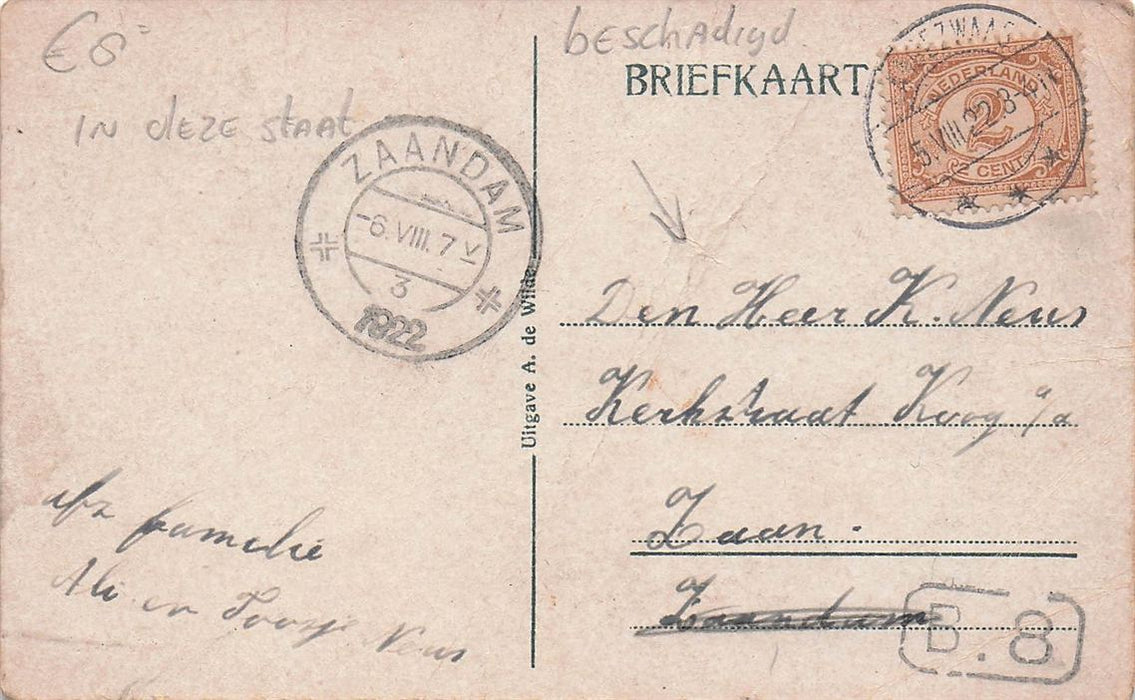 € 8=
IN deze staat
beschadigd
BRIEFKAART
NEDERLAND
2
CENT
5.VIII.22.8-
ZAANDAM
-6.VIII.7 V
3
1922
Uitgave A. de Wilde
Den Heer K. Neus
Kerkstraat Koog a/a
Zaan.
Zaandam
B.8
afz familie
Ali en Neus